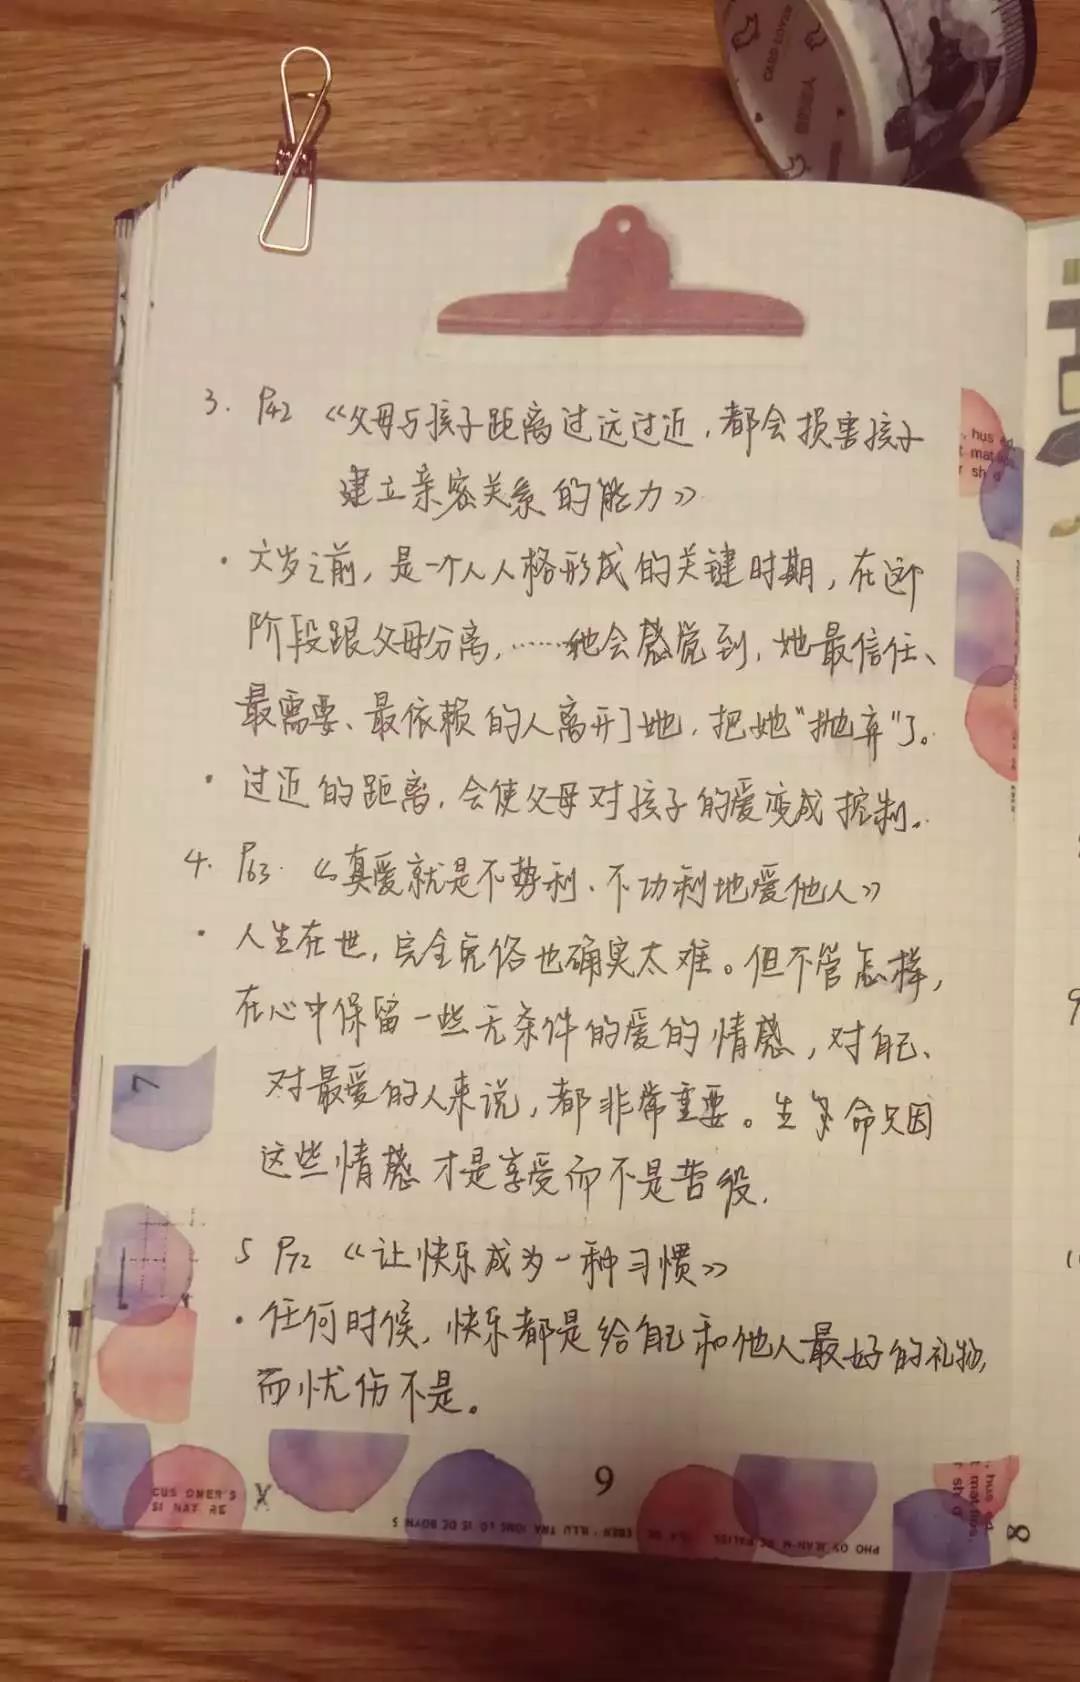 CARD LOVER
3. P42 《父母与孩子距离过远过近,都会损害孩子
建立亲密关系的能力》
· 六岁之前,是一个人人格形成的关键时期,在这个
阶段跟父母分离,……她会感觉到,她最信任、
最需要、最依赖的人离开了她,把她“抛弃”了。
· 过近的距离,会使父母对孩子的爱变成控制。
4. P63. 《真爱就是不势利、不功利地爱他人》
· 人生在世,完全免俗也确实太难。但不管怎样,
在心中保留一些无条件的爱的情感,对自己、
对最爱的人来说,都非常重要。生命只因
这些情感才是享受而不是苦役.
5 P72 《让快乐成为一种习惯》
· 任何时候,快乐都是给自己和他人最好的礼物,
而忧伤不是。
7
CUS OMER'S
SI NAT RE
X
6
8